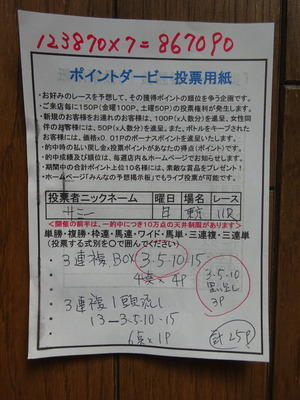 123870×7=867090
ポイントダービー投票用紙
・お好みのレースを予想して、その獲得ポイントの順位を争う企画です。
・ご来店毎に150P(金曜100P、土曜50P)の投票権利が発生します。
・新規のお客様をお連れのお客様は、100P(x人数分)を進呈、女性同
件のお客様には、50P(x人数分)を進呈。また、ボトルをキープされた
お客様には、価格×0.01Pのボーナスポイントを進呈いたします。
・的中時の払い戻し金×投票ポイントがあなたの得点(ポイント)です。
・的中成績及び順位は、毎週店内&ホームページでお知らせします。
・期間中の合計ポイント上位10名様には、素敵な賞品をプレゼント!
・ホームページ「みんなの予想掲示板」でもライブ投票が可能です。
投票者ニックネーム 曜日 場名 レース
サミー 日 東京 11R
<開催の前半は、一的中につき10万点の天井制限があります>
単勝・複勝・枠連・馬連・ワイド・馬単・三連複・三連単
(投票する式別を○で囲んでください)
3連複BOX 3.5.10.15
4点×4P
3.5.10
3P
3連複1頭流し
13-3.5.10.15
6点×1P
計25P